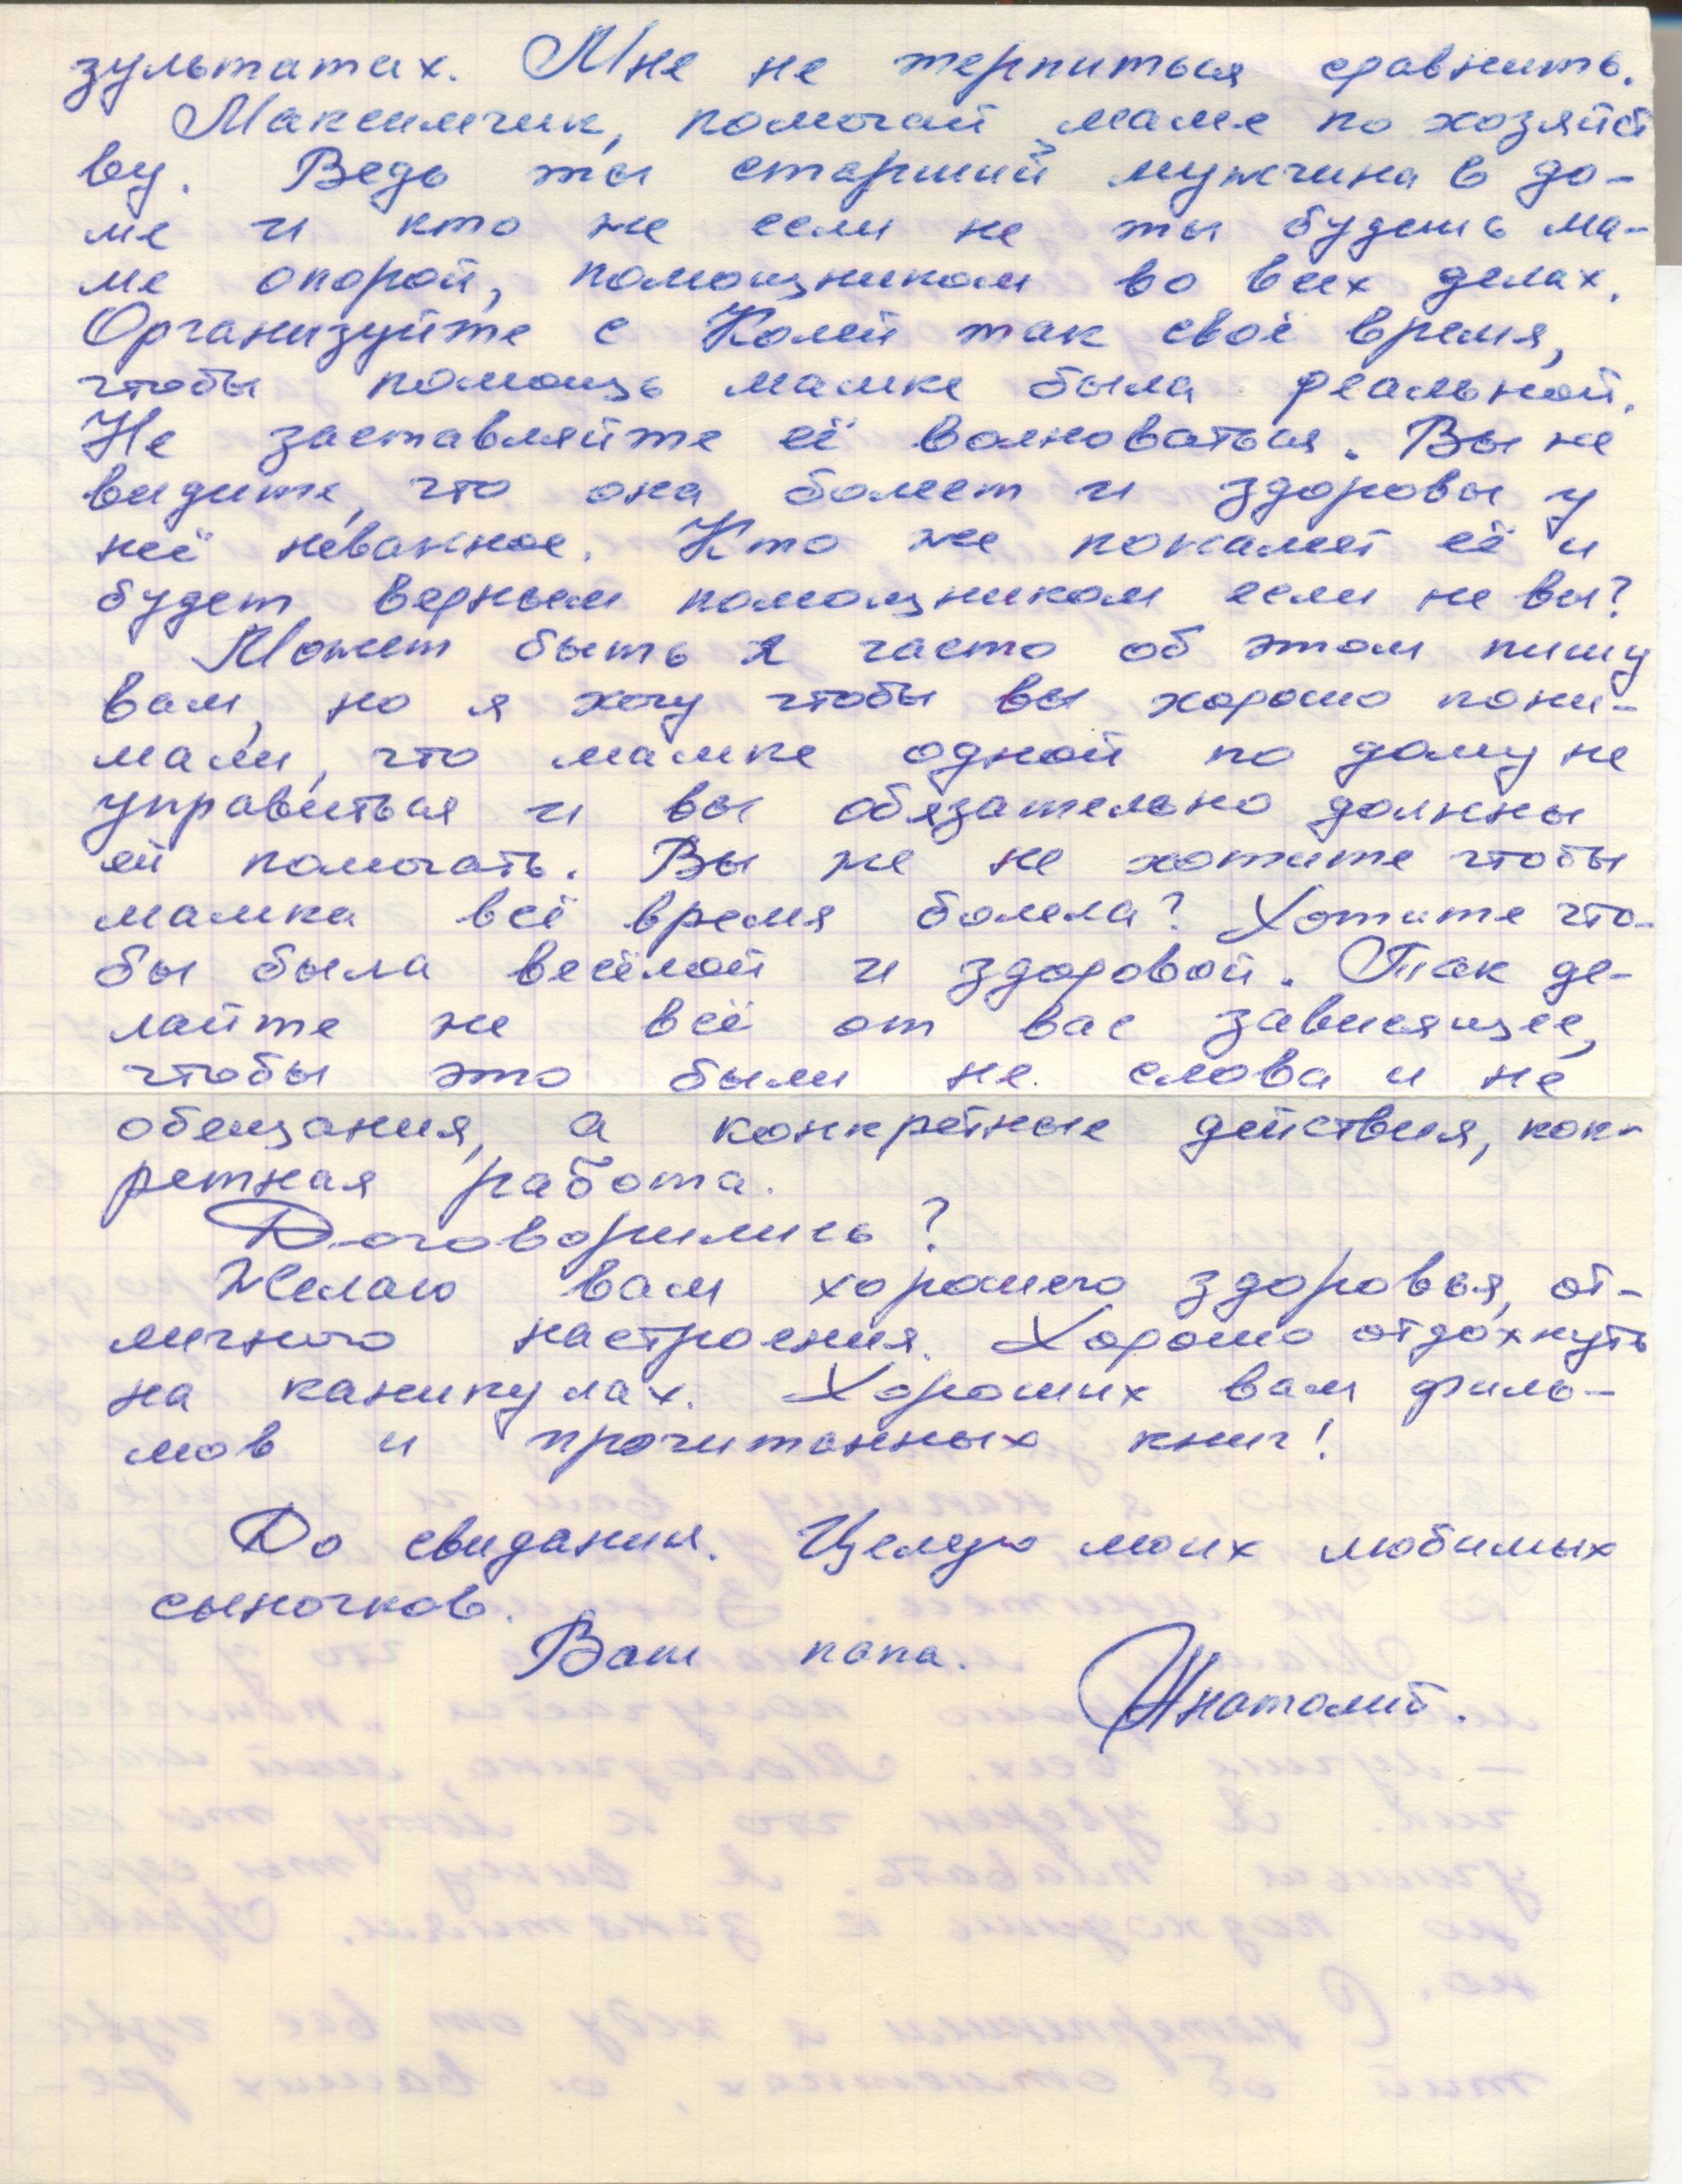 зультатах. Мне не терпиться сравнить.
Максимчик, помогай маме по хозяйст
ву. Ведь ты старший мужчина в до-
ме и кто же если не ты будешь ма-
ме опорой, помощником во всех делах.
Организуйте с Колей так своё время,
чтобы помощь мамке была реальной.
Не заставляйте её волноваться. Вы же
видите, что она болеет и здоровье у
неё неважное. Кто же пожалеет её и
будет верным помощником если не вы?
Может быть я часто об этом пишу
вам, но я хочу чтобы вы хорошо пони-
мали, что мамке одной по дому не
управиться и вы обязательно должны
ей помогать. Вы же не хотите чтобы
мамка всё время болела? Хотите что-
бы была весёлой и здоровой. Так де-
лайте же всё от вас зависящее,
чтобы это были не слова и не
обещания, а конкретные действия, конк-
ретная работа.
Договорились?
Желаю вам хорошего здоровья, от-
личного настроения. Хорошо отдохнуть
на каникулах. Хороших вам филь-
мов и прочитанных книг!
До свидания. Целую моих любимых
сыночков.
Ваш папа.
Анатолий.